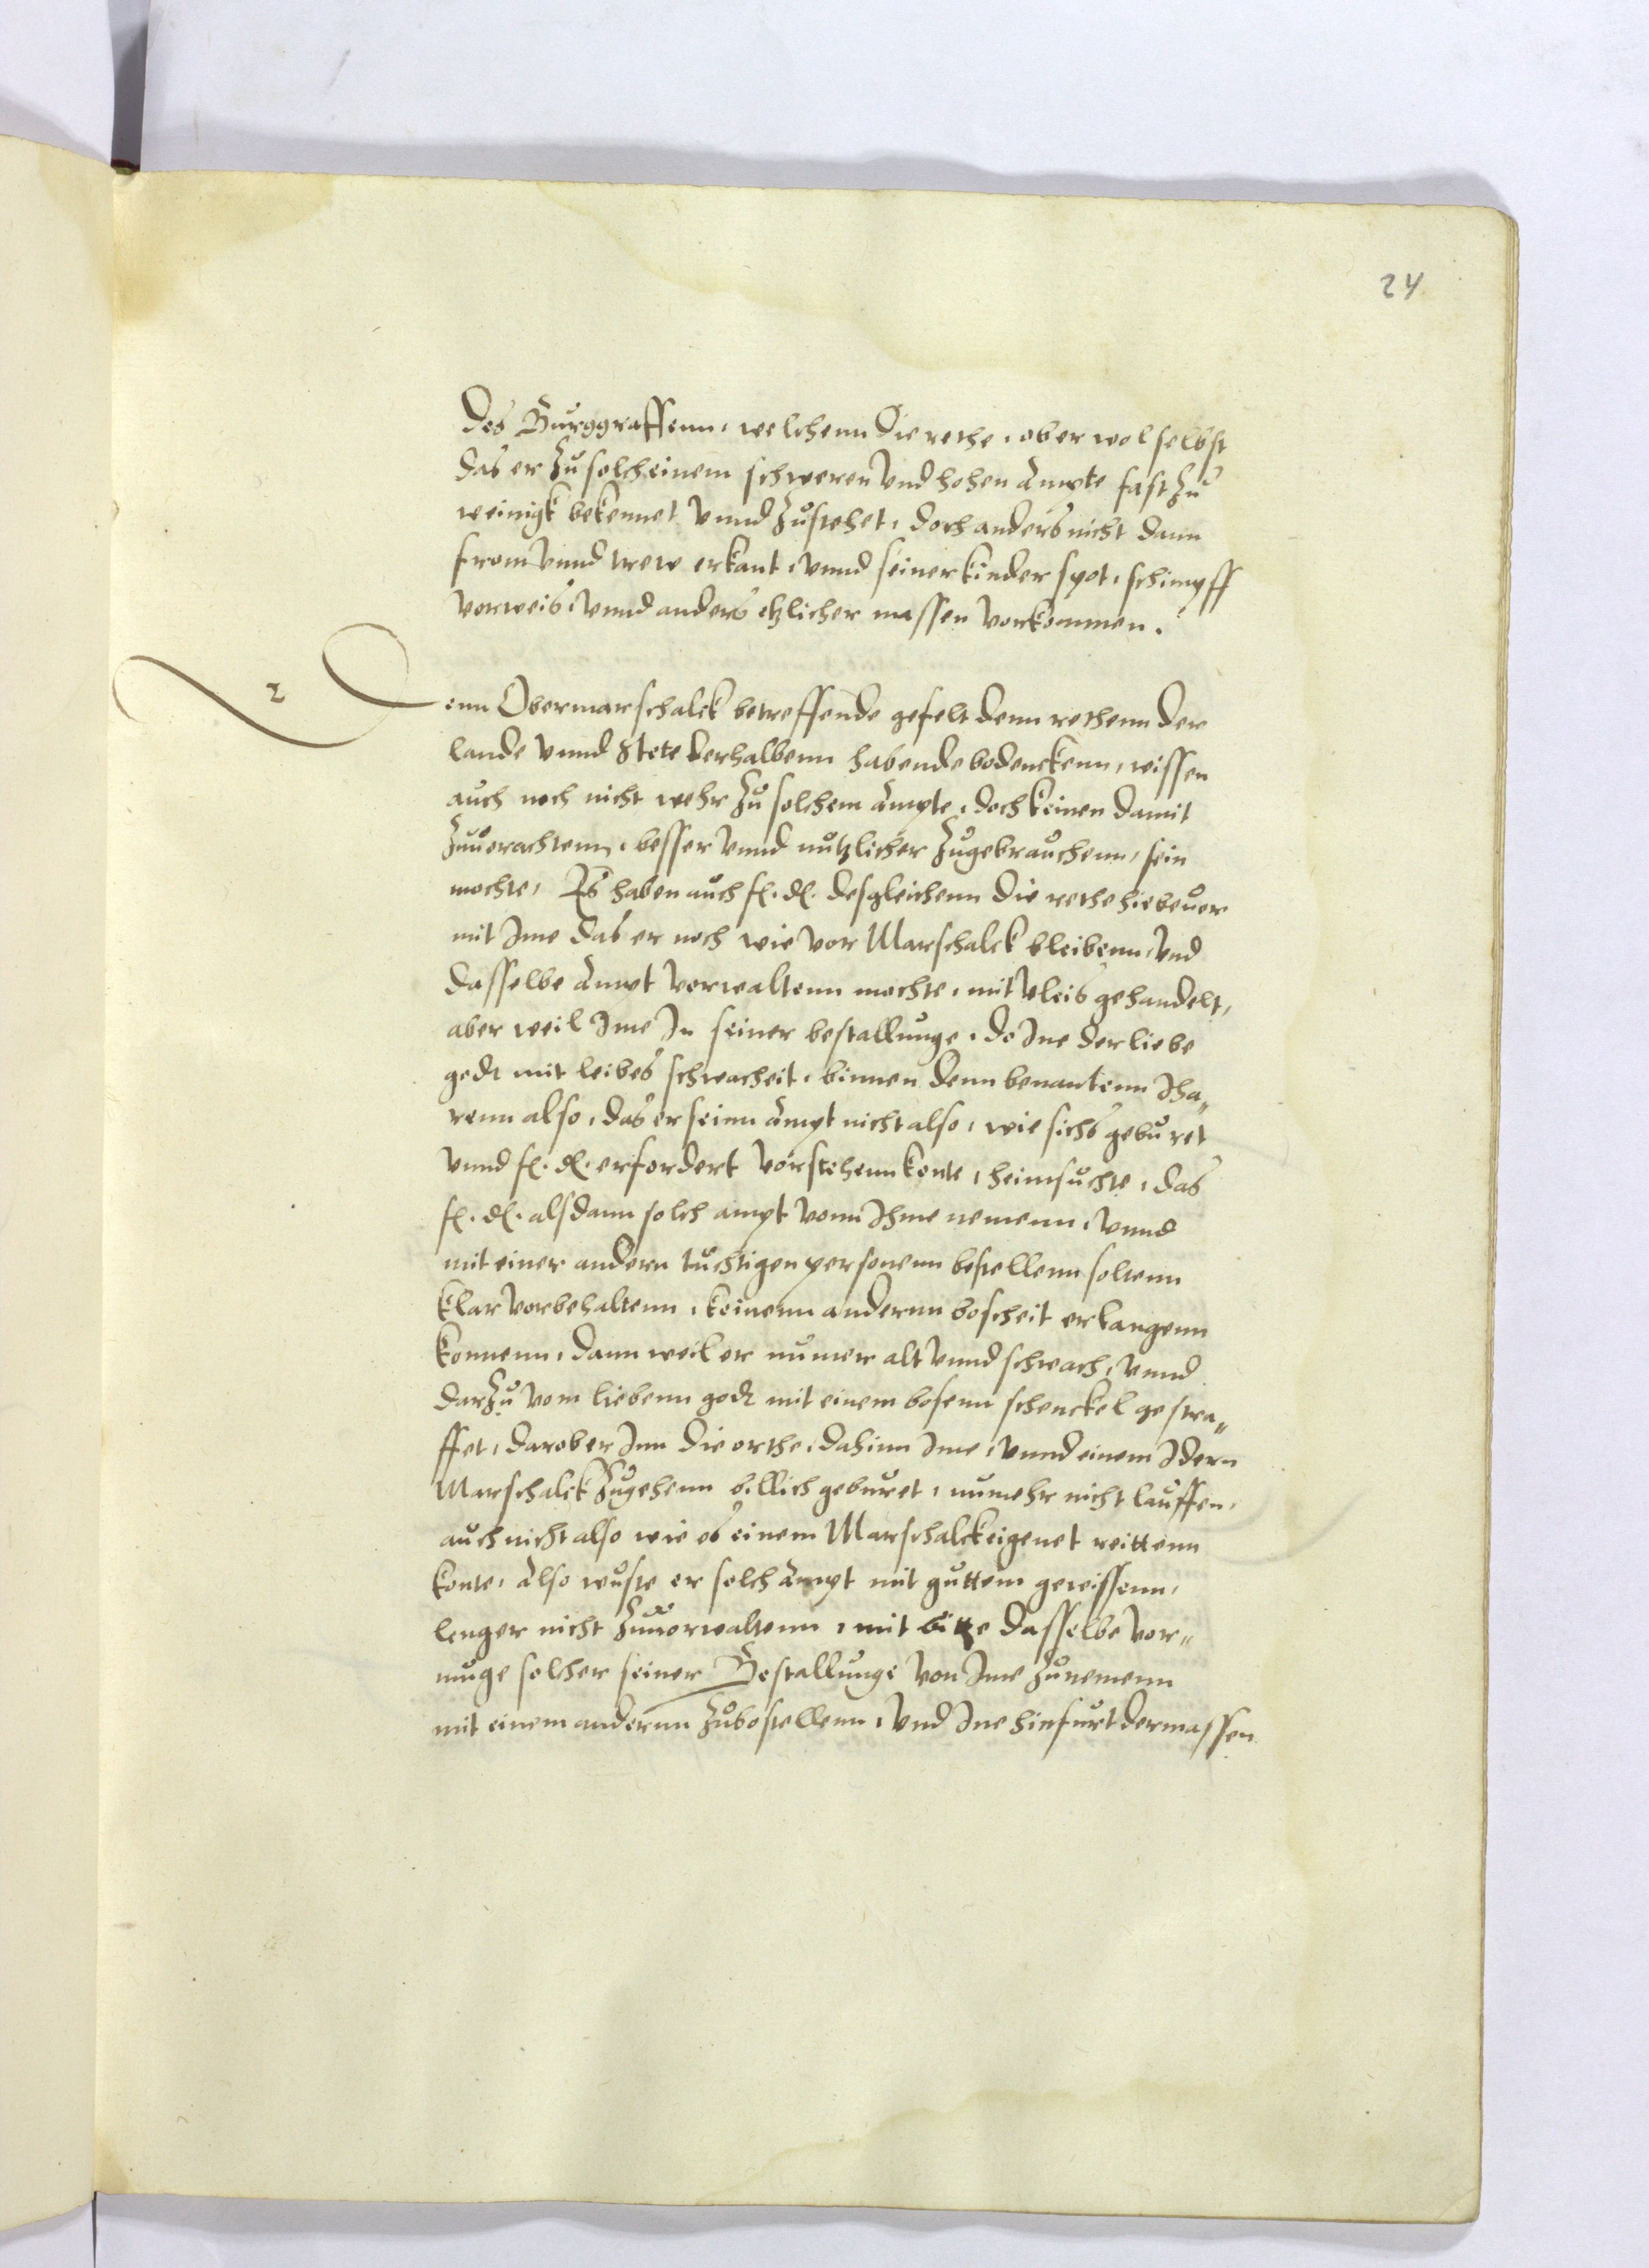 24
Des Burggraffenn, welchenn die rethe, ob er wol selbst
das er zu solch einem schweren vnd hohen ampte fast zu
weinigk bekennet vnnd zustehet, doch anders nicht dann
from vnnd trew erkant, vnnd seiner kinder spot, schimpff
vorweis, vnnd anders etzlicher massen vorkommen.
2
Denn Obermarschalck betreffende gefelt denn rethenn der
lande vnnd Stete derhalbenn habende bedenckenn, wissen
auch noch nicht wehr zu solchem ampte, doch keinen damit
zuuerachtenn, besser vnnd nutzlicher zugebrauchenn, sein
mochte, Es haben auch f. d. desgleichenn die rethe hiebeuor
mit Ime das er noch wie vor Marschalck bleibenn, vnd
dasselbe ampt vorwaltenn mochte, mit vleis gehandelt,
aber weil Ime In seiner bestallunge, do Ine der liebe
godt mit leibes schwacheit, binnen denn benantenn Iha„
renn also, das er seinn ampt nicht also, wie sichs geburet
vnnd f. d. erfordert vorstehenn konte, heimsuchte, das
f. d. alsdann solch ampt vonn Ihme nemenn, vnnd
mit einer andern tuchtigen personenn bestellenn soltenn
klar vorbehaltenn, keinenn andernn bescheit erlangenn
konnenn, dann weil er numer alt vnnd schwach, vnnd
darzu vom liebenn godt mit einem bosenn schenckel gestra„
ffet, darober Inn die orthe, dahinn Ime, vnnd einem Idern
Marschalck zugehenn billich geburet, numehr nicht lauffen,
auch nicht also wie es einem Marschalck eigenet reittenn
konte, Also wuste er solch ampt mit guttem gewissenn,
lenger nicht zuuorwaltenn, mit bitte dasselbe vor„
muge solcher seiner Bestallunge von Ime zunemenn
mit einem andernn zubestellenn, vnd Ine hinfurt dermassen